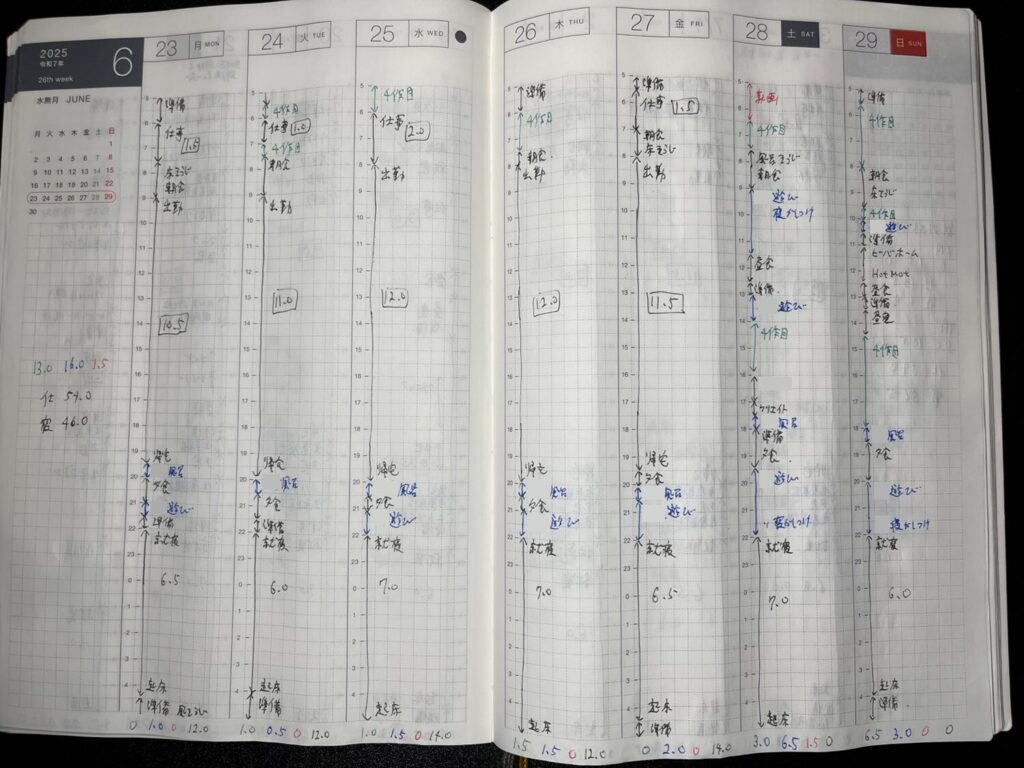 2025
令和7年
6
26th week
水無月 JUNE
月 火 水 木 金 土 日
1
2 3 4 5 6 7 8
9 10 11 12 13 14 15
16 17 18 19 20 21 22
23 24 25 26 27 28 29
30
13.0 16.0 1.5
仕 59.0
寝 46.0
23 月 MON
準備
仕事
1.5
朝食
出勤
10.5
帰宅
風呂
夕食
遊び
準備
就寝
6.5
起床
準備
0 1.0 0 12.0
24 火 TUE
4作目
仕事 1.0
4作目
朝食
出勤
11.0
帰宅
風呂
夕食
準備
就寝
6.0
起床
準備
1.0 0.5 0 12.0
25 水 WED
4作目
仕事
2.0
出勤
12.0
帰宅
風呂
夕食
遊び
就寝
7.0
起床
1.0 1.5 0 14.0
26 木 THU
準備
4作目
朝食
出勤
12.0
帰宅
風呂
夕食
遊び
就寝
7.0
起床
1.5 1.5 0 12.0
27 金 FRI
準備
仕事 1.5
朝食
出勤
11.5
帰宅
夕食
風呂
遊び
就寝
6.5
起床
準備
0 2.0 0 14.0
28 土 SAT
4作目
朝食
遊び
寝かしつけ
昼食
準備
遊び
4作目
風呂
準備
夕食
遊び
寝かしつけ
就寝
7.0
起床
3.0 6.5 1.5 0
29 日 SUN
準備
4作目
朝食
4作目
遊び
準備
ビーバホーム
Hot Mot
昼食
準備
4作目
風呂
夕食
遊び
寝かしつけ
就寝
6.0
起床
準備
6.5 3.0 0 0